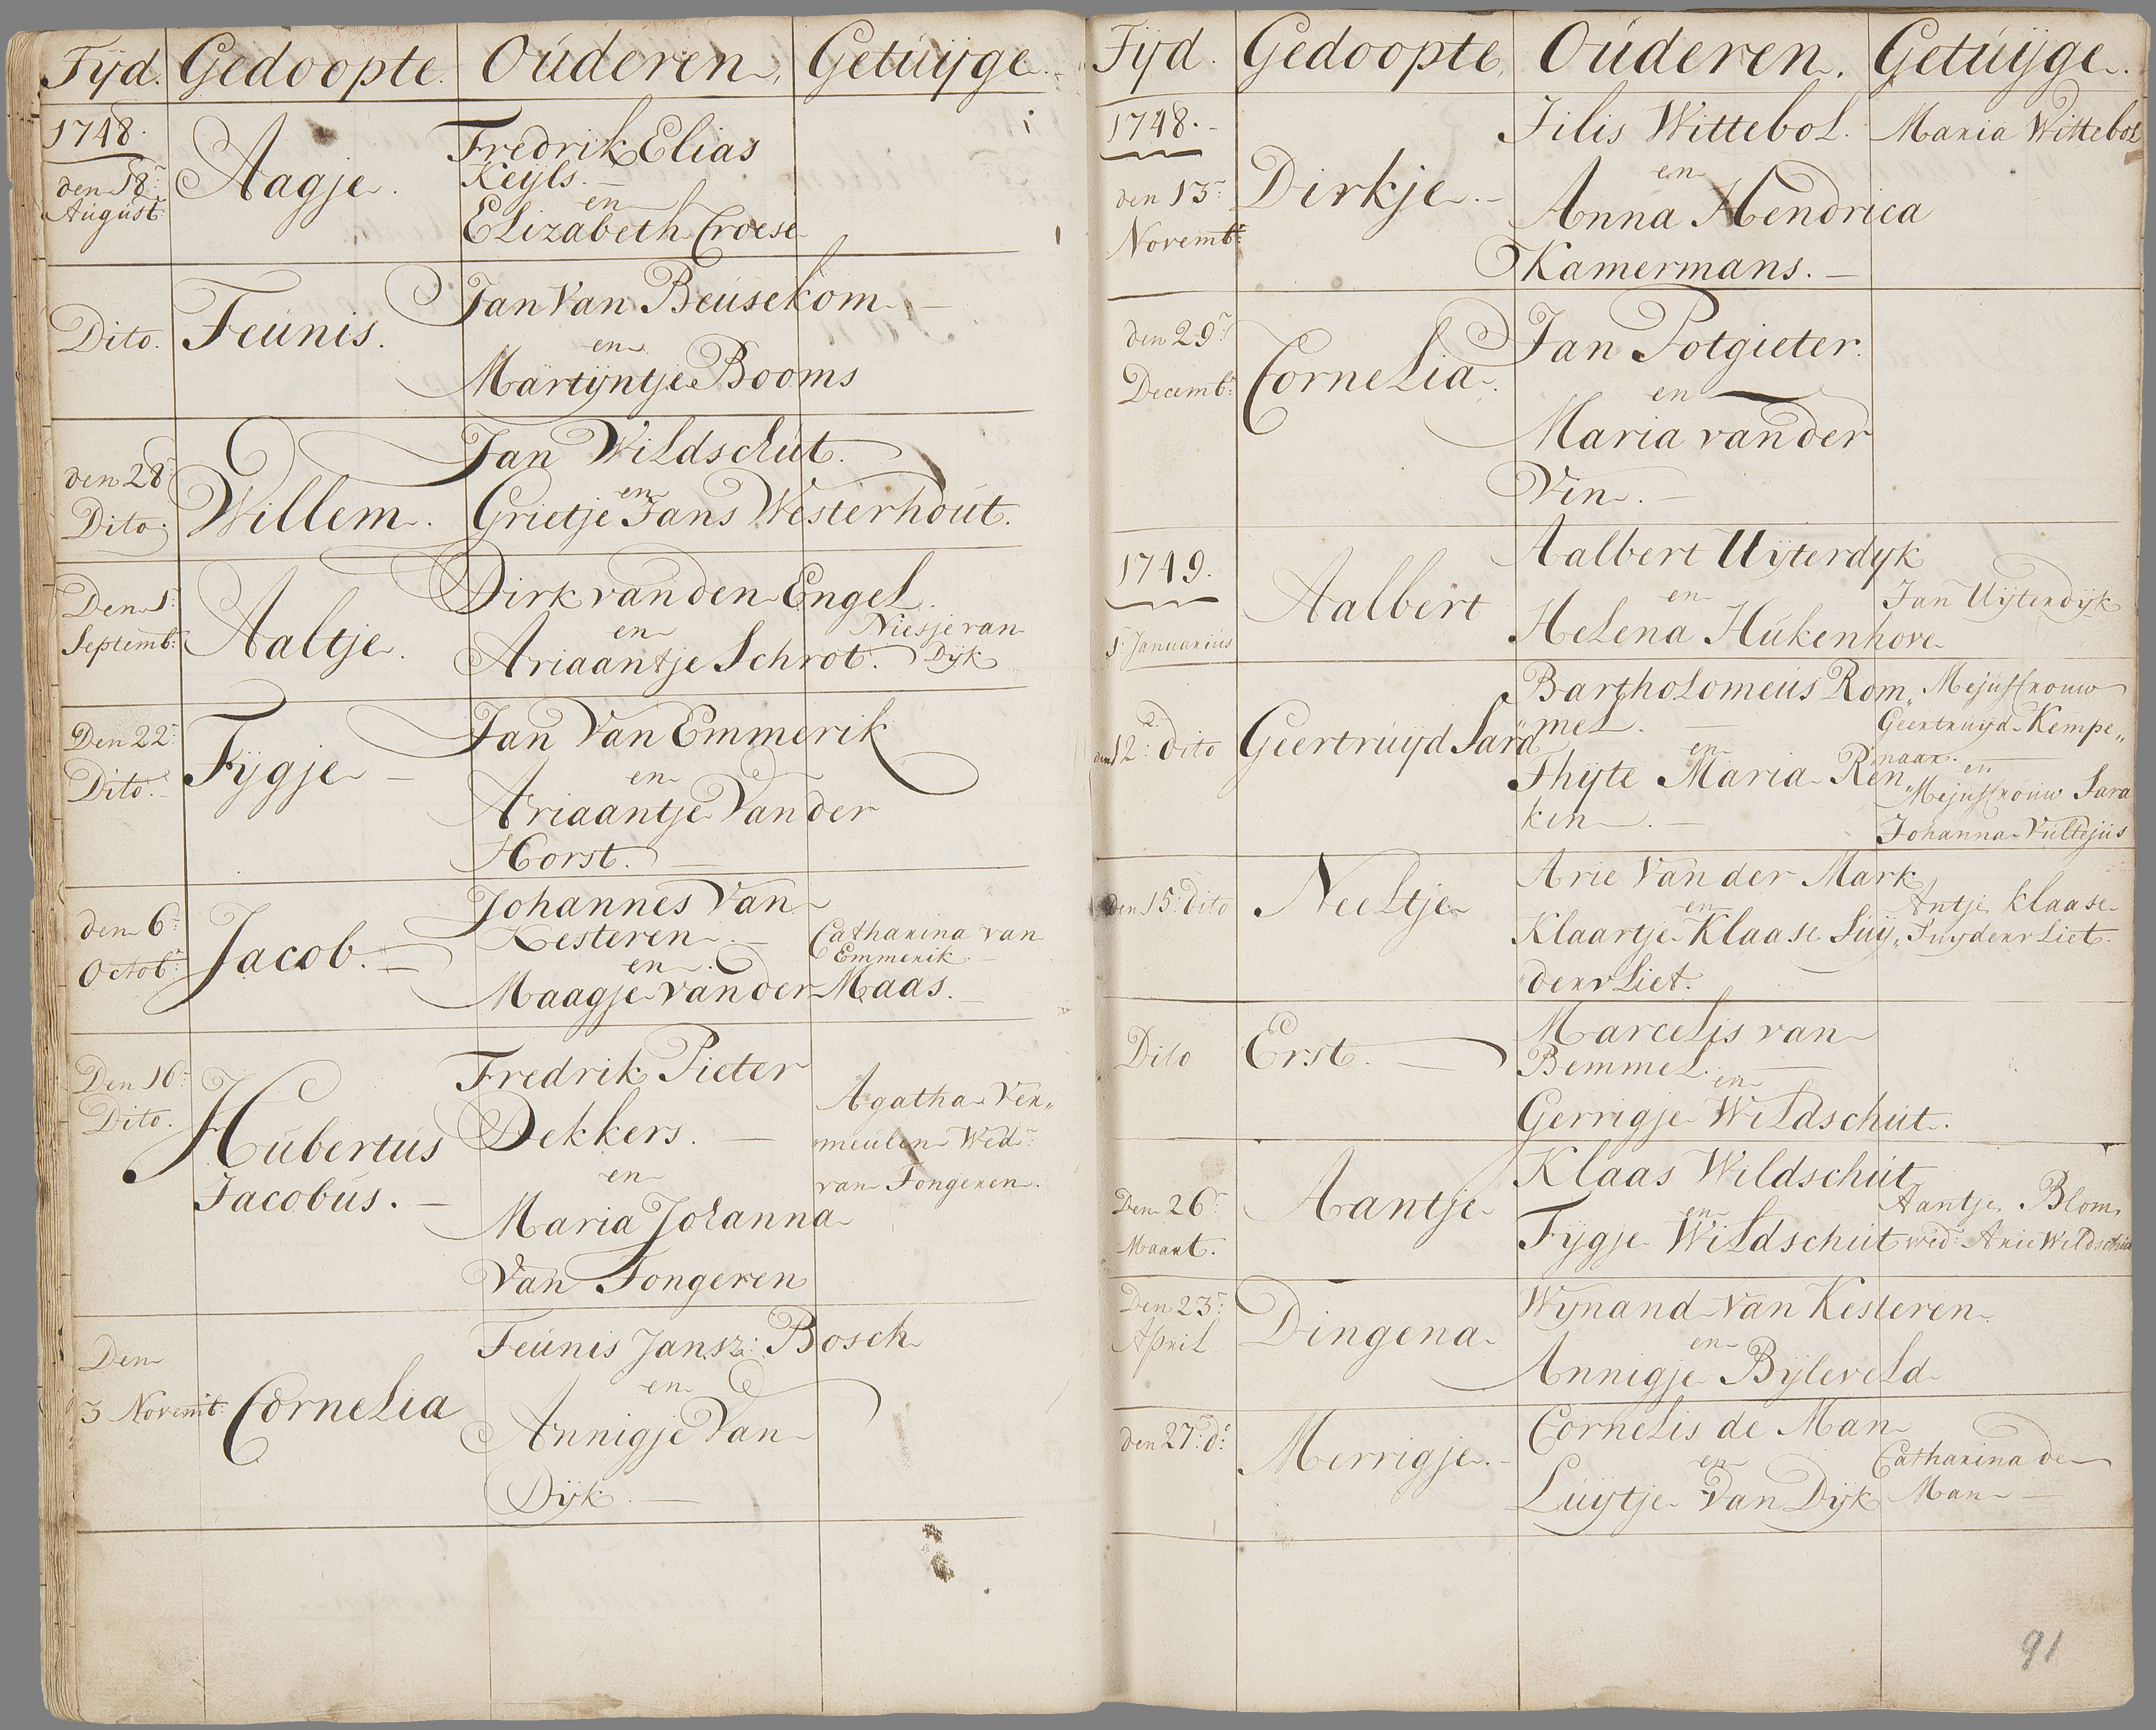 Tijd. Gedoopte. Ouderen. Getuijge.
1748.
den 18:
August:
Aagje.
Fredrik Elias
Keyls.
en
Elizabeth Croese
Dito.
Teunis.
Jan Van Beusekom
en
Martijntje Booms
den 28:
Dito.
Willem.
Jan Wildschut.
en
Grietje Jans Westerhout.
Den 1:
Septemb:
Aaltje.
Dirk van den Engel.
en
Ariaantje Schrot.
Niesje van
Dijk
Den 22:
Dito.
Fijgje
Jan Van Emmerik
en
Ariaantje Van der
Horst.
den 6:
Octob:
Jacob.
Johannes Van
Kesteren.
en
Maagje van der Maas.
Catharina van
Emmerik
Den 16:
Dito.
Hubertus
Jacobus.
Fredrik Pieter
Dekkers.
en
Maria Johanna
Van Tongeren
Agatha Ver„
meulen Wed:
van Tongeren.
Den
3 Novemb:
Cornelia
Teunis Jansz: Bosch
en
Annigje Van
Dijk.
Tijd. Gedoopte. Ouderen. Getuijge.
1748.
den 13:
Novemb:
Dirkje.
Jilis Wittebol.
en
Anna Hendrica
Kamermans.
Maria Wittebol
den 29:
Decemb:
Cornelia.
Jan Potgieter.
en
Maria van der
Vin.
1749.
1: Januarius
Aalbert
Aalbert Uijterdyk
en
Helena Hukenhove
Jan Uijterdijk
den 12: dito
Geertruijd Sara
Bartholomeus Rom„
mel.
en
Thijte Maria Ren„
ken.
Mejuffrouw
Geertruijd Kempe„
naar.
en
Mejuffrouw Sara
Johanna Vultejus
den 15: dito
Neeltje
Arie Van der Mark
en
Klaartje Klaase Suij„
dervliet.
Antje klaase
Suydervliet.
Dito
Erst.
Marcelis van
Bemmel.
en
Gerrigje Wildschut.
Den 26:
Maart.
Aantje
Klaas Wildschut
en
Fijgje Wildschut
Aantje Blom,
wed: Arie Wildschut
Den 23:
April.
Dingena
Wijnand Van Kesteren.
en
Annigje Bijleveld
den 27: d:
Merrigje.
Cornelis de Man
en
Luijtje Van Dijk
Catharina de
Man
91